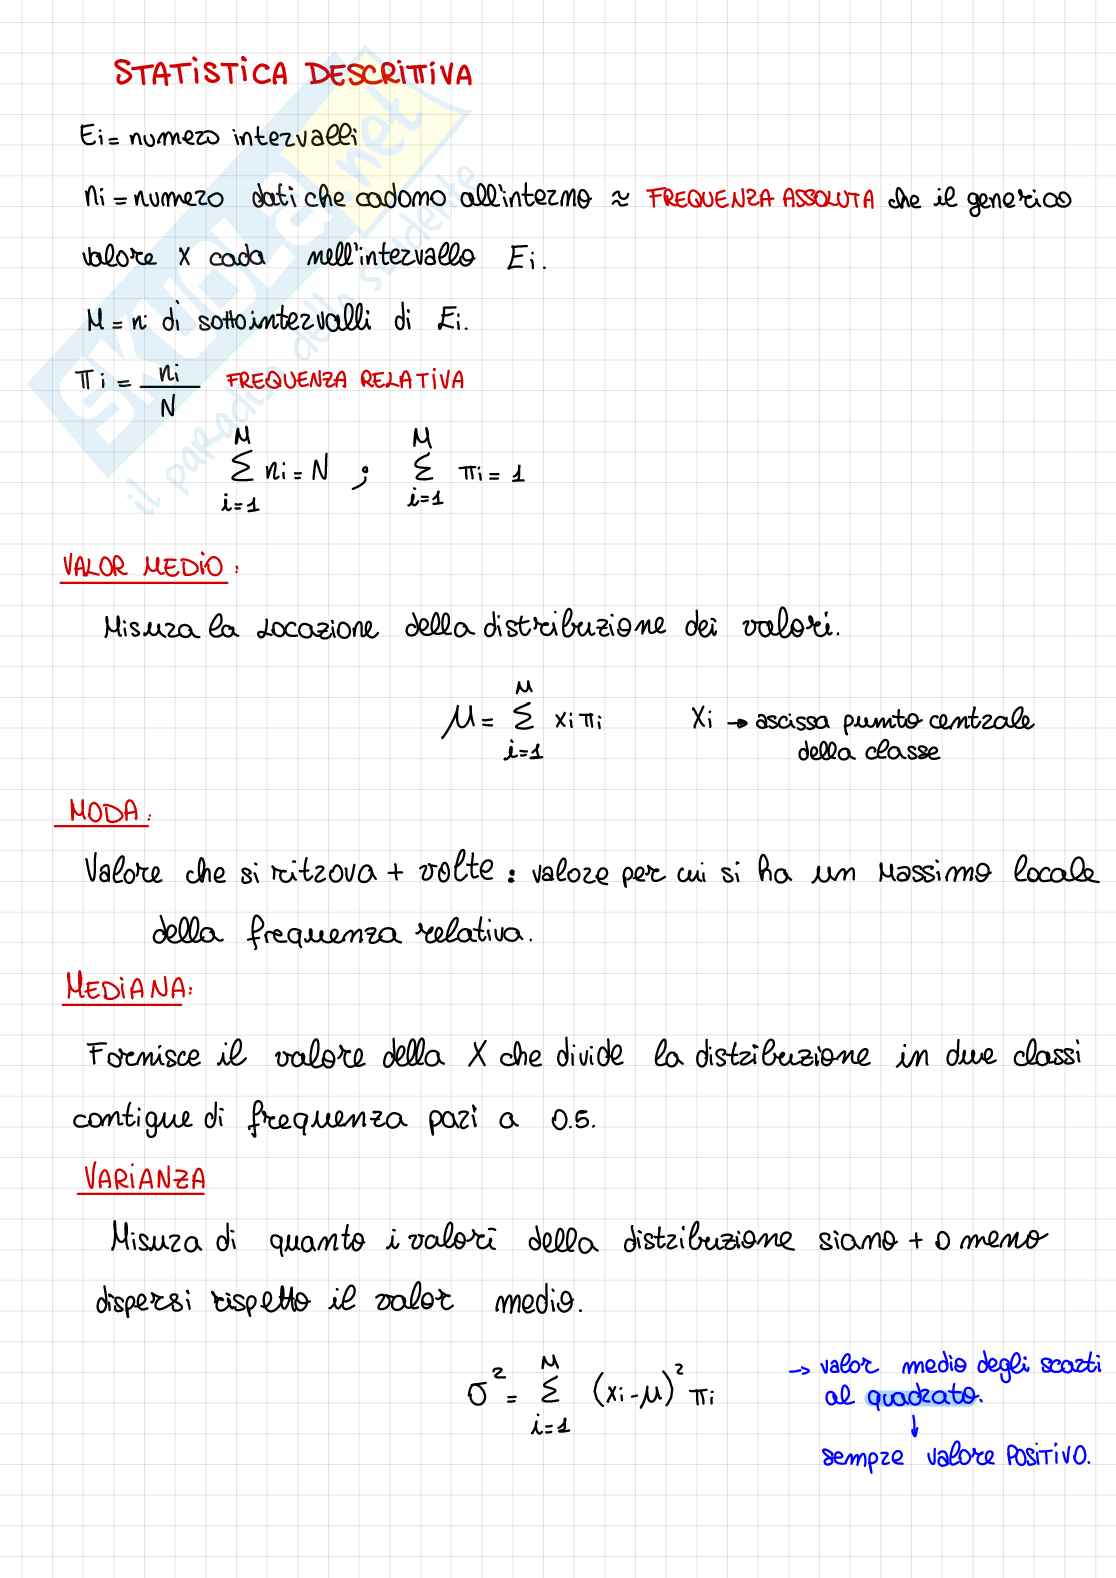 STATISTICA DESCRITTIVA
Ei = numero intervalli
ni = numero dati che cadono all'interno ≈ FREQUENZA ASSOLUTA che il generico
valore X cada nell'intervallo Ei.
M = n. di sottointervalli di Ei.
πi = ni/N FREQUENZA RELATIVA
∑_{i=1}^{M} ni = N ; ∑_{i=1}^{M} πi = 1
VALOR MEDIO:
Misura la locazione della distribuzione dei valori.
μ = ∑_{i=1}^{M} xi πi Xi → ascissa punto centrale
della classe
MODA:
Valore che si ritrova + volte : valore per cui si ha un massimo locale
della frequenza relativa.
MEDIANA:
Fornisce il valore della X che divide la distribuzione in due classi
contigue di frequenza pari a 0.5.
VARIANZA
Misura di quanto i valori della distribuzione siano + o meno
dispersi rispetto il valor medio.
σ² = ∑_{i=1}^{M} (xi - μ)² πi → valor medio degli scarti
al quadrato.
↓
sempre valore POSITIVO.
SKUOLA.net
il paradiso dello studente